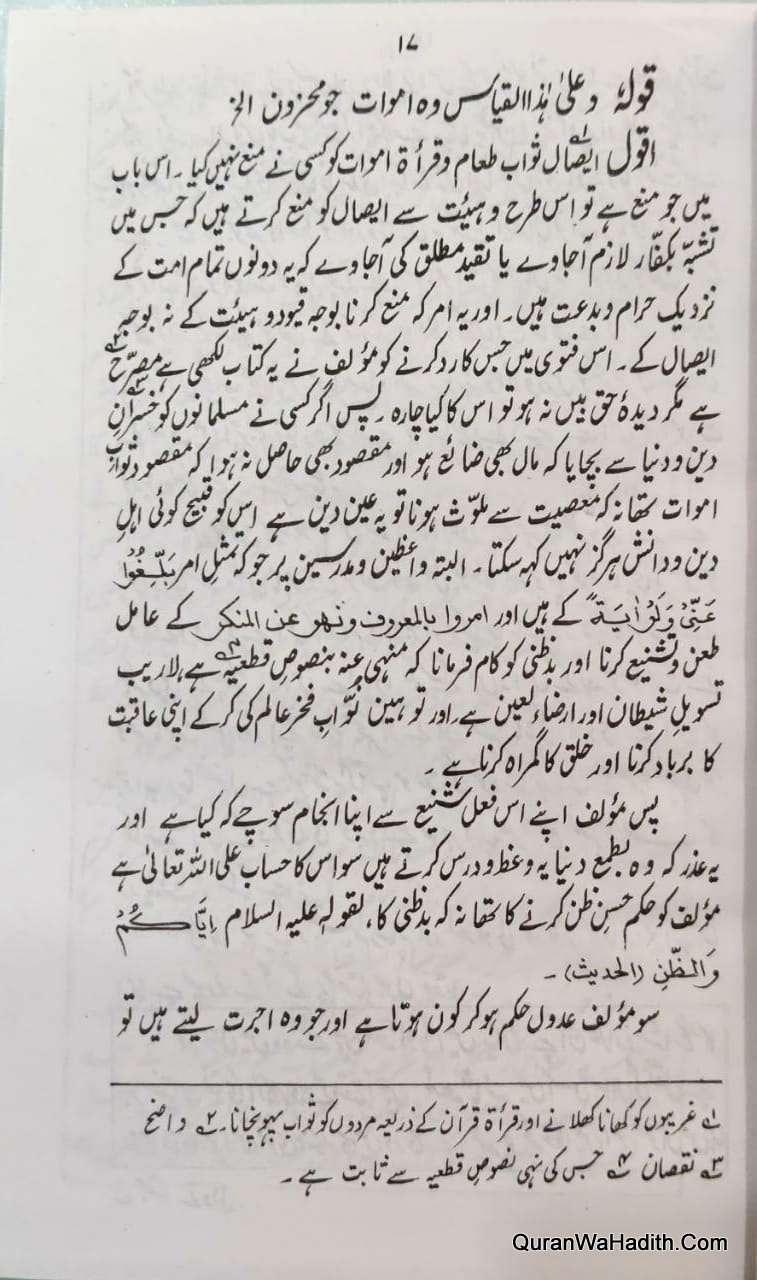 ۱۷
قولہٗ وعلیٰ ہذا القیاس وہ اموات جو محزون الخ
اقول ایصال ثواب طعام وقرأۃ اموات کو کسی نے منع نہیں کیا۔ اس باب
میں جو منع ہے تو اس طرح و ہیئت سے ایصال کو منع کرتے ہیں کہ جس میں
تشبّہ بکفّار لازم آجاوے یا تقید مطلق کی آجاوے کہ یہ دونوں تمام امت کے
نزدیک حرام و بدعت ہیں۔ اور یہ امر کہ منع کرنا بوجہ قیود و ہیئت کے نہ بوجہ
ایصال کے۔ اس فتویٰ میں جس کا رد کرنے کو مؤلف نے یہ کتاب لکھی ہے مصرّح۲
ہے مگر دیدۂ حق بیں نہ ہو تو اس کا کیا چارہ۔ پس اگر کسی نے مسلمانوں کو خسرانِ۳
دین و دنیا سے بچایا کہ مال بھی ضائع ہو اور مقصود بھی حاصل نہ ہوا کہ مقصود ثواب
اموات تھا نہ کہ معصیت سے ملوّث ہونا تو یہ عین دین ہے اس کو قبیح کوئی اہلِ
دین و دانش ہرگز نہیں کہہ سکتا۔ البتہ واعظین و مدرسین پر جو کہ ممثلِ امر بَلِّغُوْا
عَنِّیْ وَلَوْ اٰیَۃً کے ہیں اور امروا بالمعروف ونھو عن المنکر کے عامل
طعن و تشنیع کرنا اور بدظنی کو کام فرمانا کہ منہی عنہ بنصوصِ قطعیہ۴ ہے، لاریب
تسویلِ شیطان اور ارضاء لعین ہے اور توہین نوّابِ فخر عالم کی کرکے اپنی عاقبت
کا برباد کرنا اور خلق کا گمراہ کرنا ہے۔
پس مؤلف اپنے اس فعل شنیع سے اپنا انجام سوچے کہ کیا ہے اور
یہ عذر کہ وہ بطمع دنیا یہ وعظ و درس کرتے ہیں سو اس کا حساب علی اللہ تعالیٰ ہے
مؤلف کو حکم حسنِ ظن کرنے کا تھا نہ کہ بدظنی کا، لقولہٖ علیہ السلام اِیَّاکُمْ
وَالظَّنِ (الحدیث)۔
سو مؤلف عدول حکم ہو کر کون ہوتا ہے اور جو وہ اجرت لیتے ہیں تو
۱ غریبوں کو کھانا کھلانے اور قرأۃ قرآن کے ذریعہ مردوں کو ثواب پہونچانا۔ ۲ واضح
۳ نقصان ۴ جس کی نہی نصوصِ قطعیہ سے ثابت ہے۔
QuranWaHadith.Com